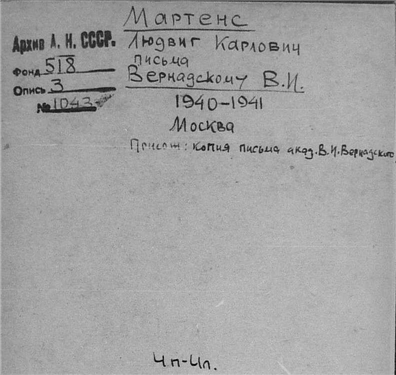 Мартенс
Архив А. Н. СССР.
Людвиг Карлович
письма
Фонд 518
Вернадскому В.И.
Опись 3
№ 1043
1940-1941
Москва
Прилож: копия письма акад. В.И.Вернадского
4п-4л.